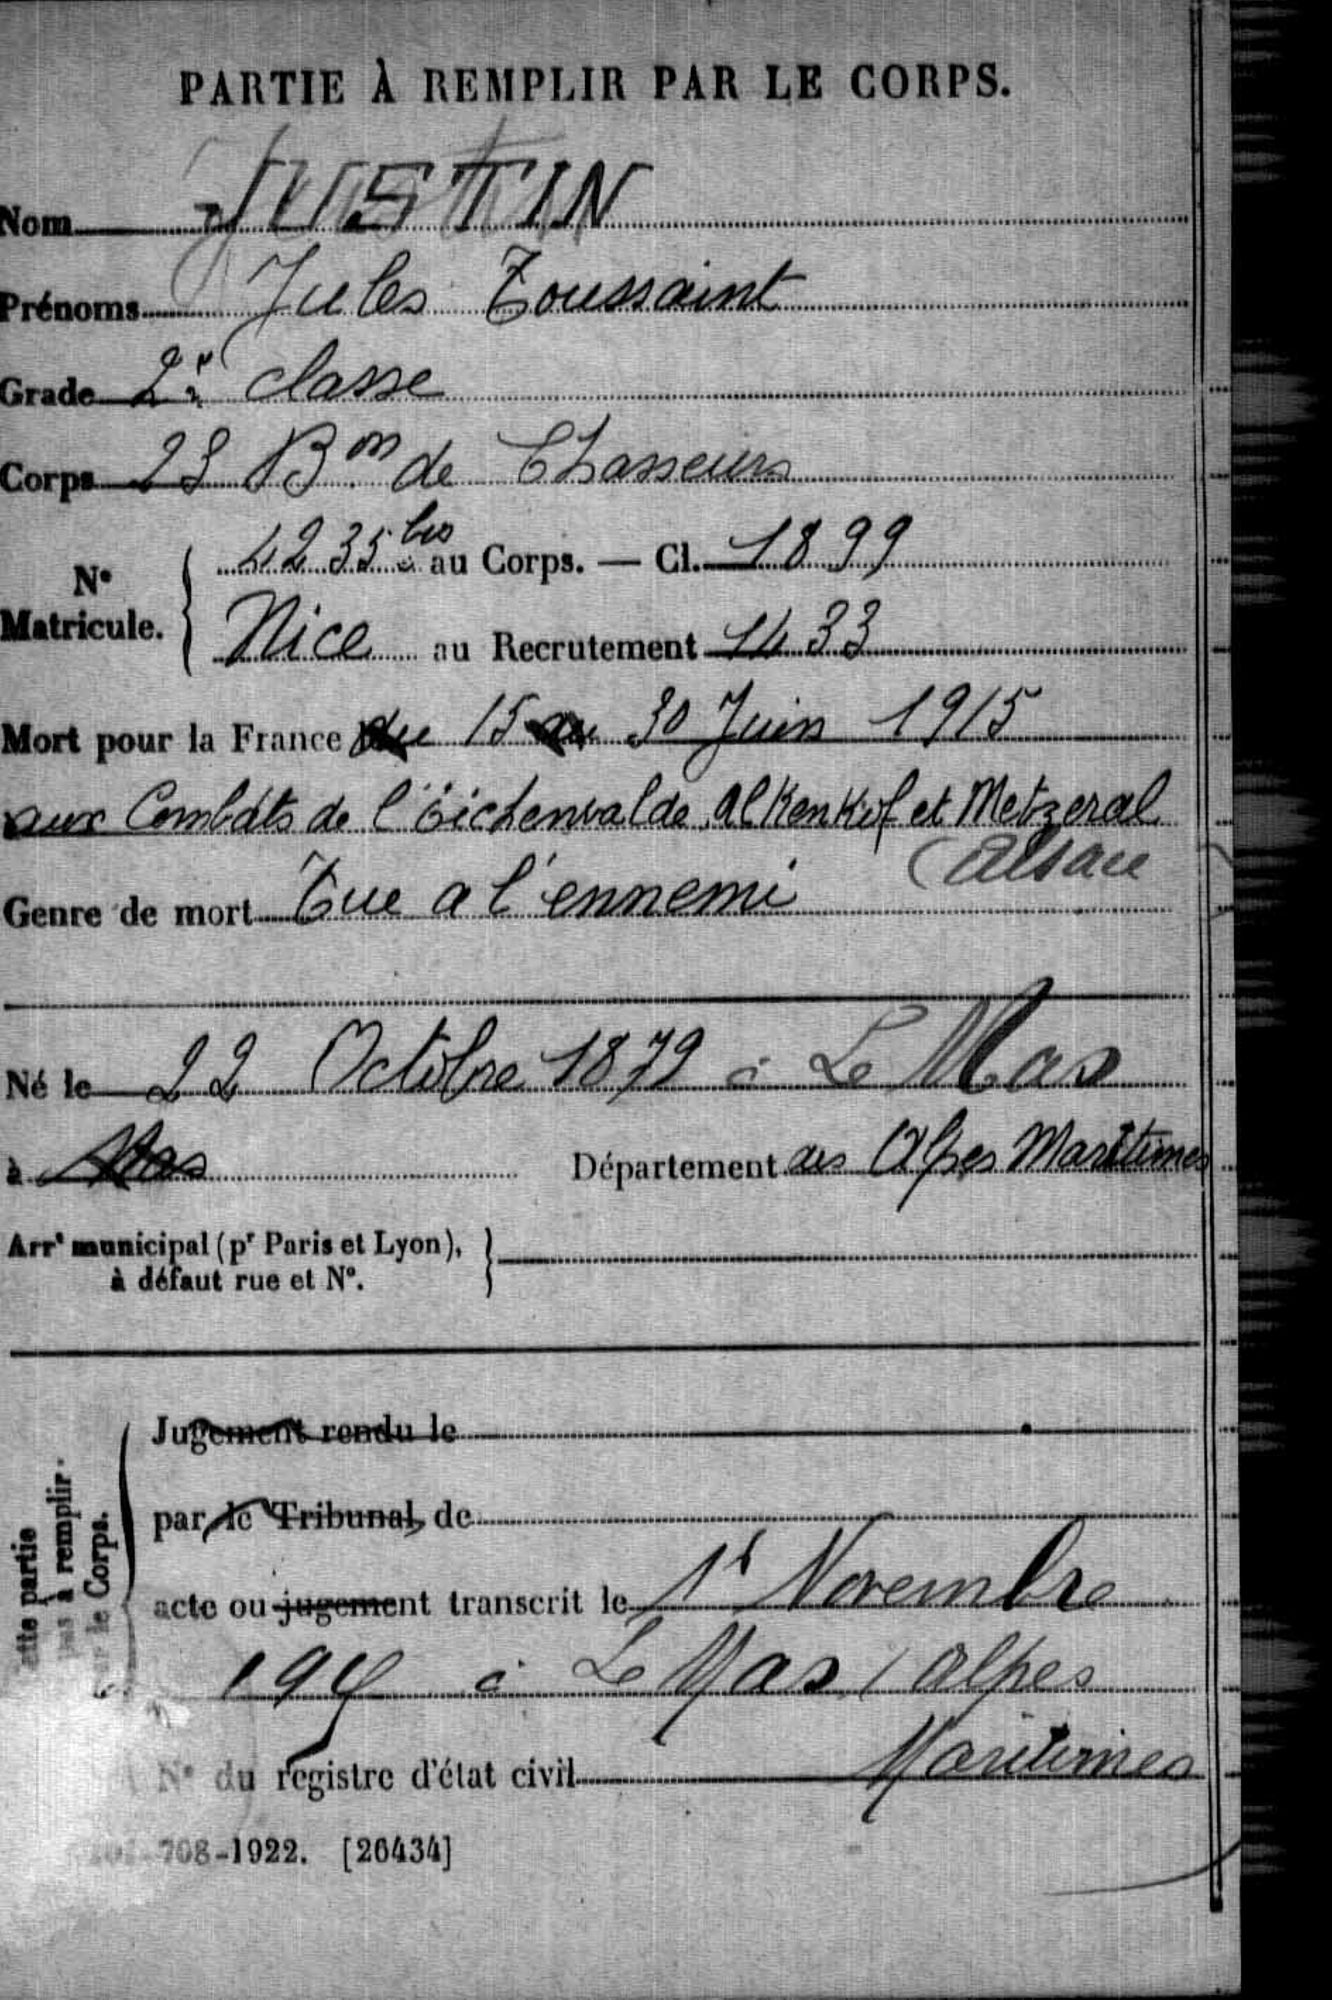 PARTIE À REMPLIR PAR LE CORPS.
Nom JUSTIN
Prénoms Jules Toussaint
Grade 2e classe
Corps 23 Bon de Chasseurs
No Matricule. 4235 bis au Corps. — Cl. 1899
Nice au Recrutement 1433
Mort pour la France du 15 au 30 Juin 1915
aux Combats de l'Eichenwalde, Alkenkof et Metzeral
(Alsace
Genre de mort Tue a l'ennemi
Né le 22 Octobre 1879 à Le Mas
à Mas Département des Alpes Maritimes
Arrt municipal (pr Paris et Lyon),
à défaut rue et No.
Jugement rendu le
par le Tribunal de
acte ou jugement transcrit le 1r Novembre
à Le Mas (Alpes
Maritimes
No du registre d'état civil
ette partie
pas à remplir
le Corps.
708-1922. [26434]